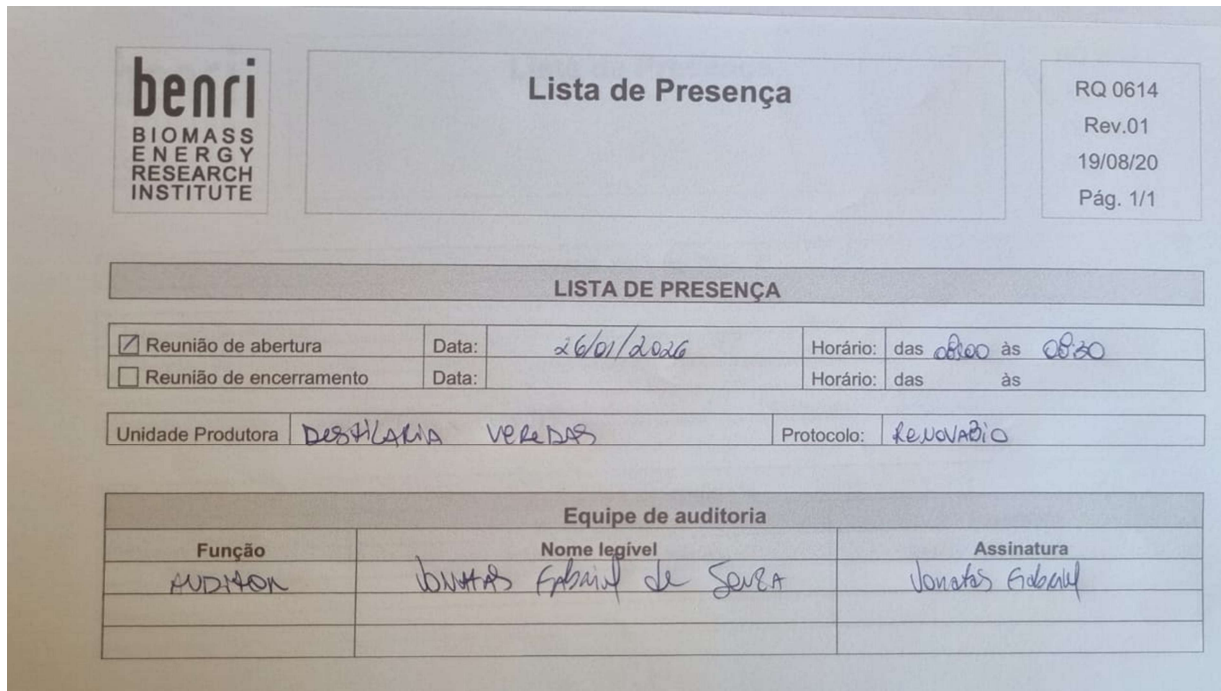 benri
BIOMASS
ENERGY
RESEARCH
INSTITUTE
Lista de Presença
RQ 0614
Rev.01
19/08/20
Pág. 1/1
LISTA DE PRESENÇA
Reunião de abertura Data: 26/01/2026 Horário: das 08:00 às 08:30
Reunião de encerramento Data: Horário: das às
Unidade Produtora DESTILARIA VEREDAS Protocolo: RENOVABIO
Equipe de auditoria
Função Nome legível Assinatura
AUDITOR JONATAS GABRIEL de SOUZA Jonatas Gabriel